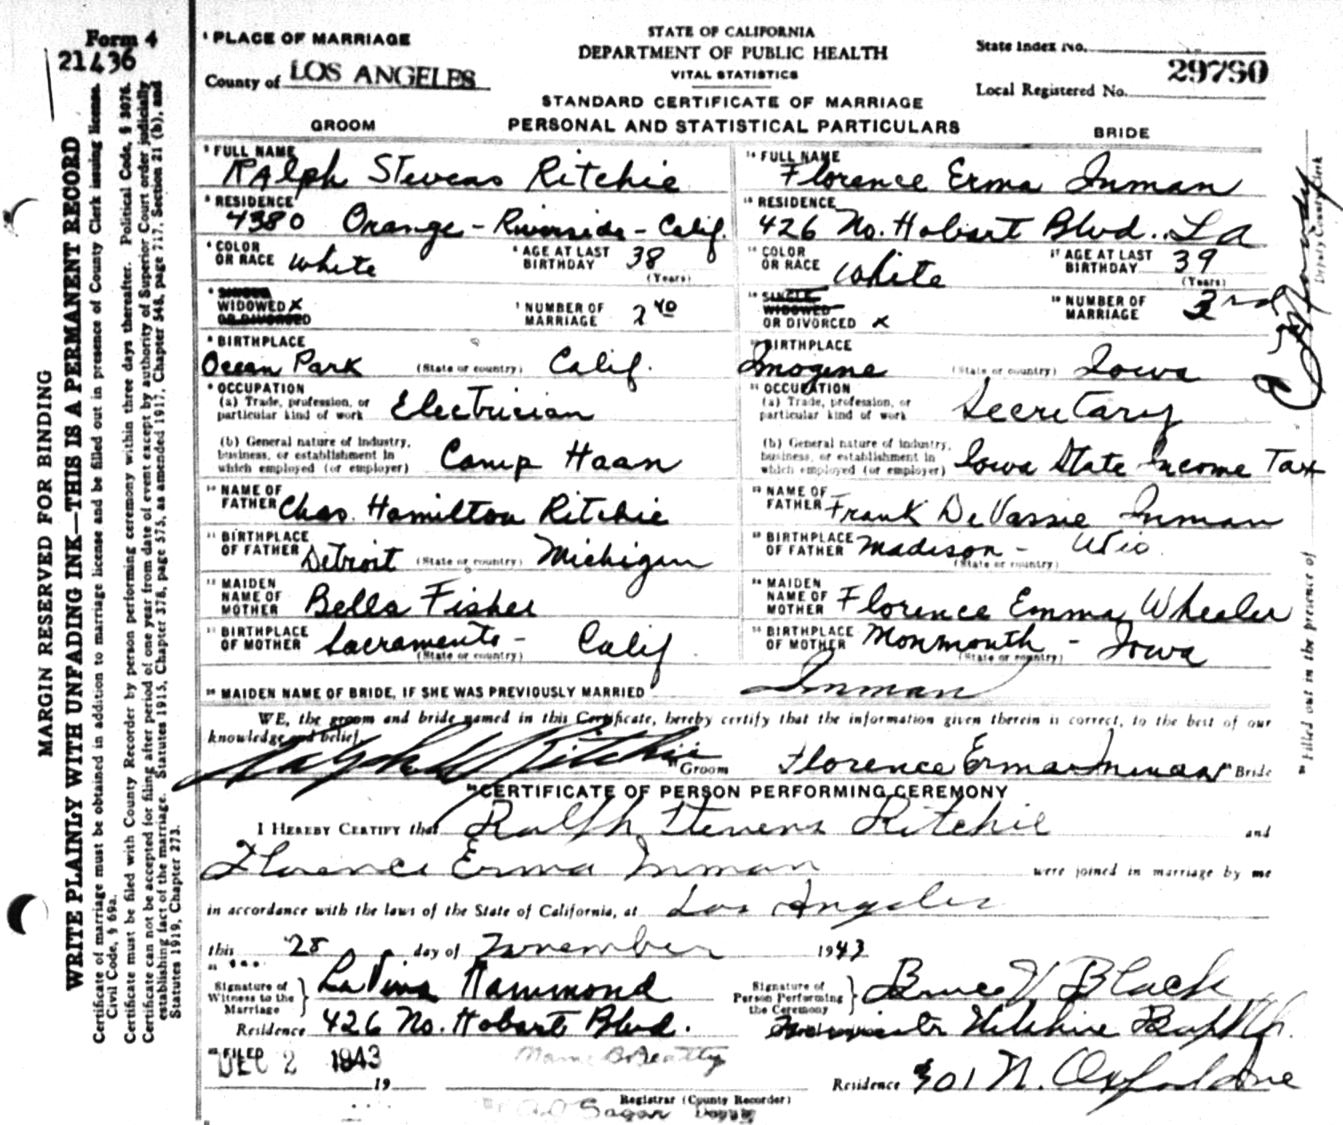 Form 4
21436
MARGIN RESERVED FOR BINDING
WRITE PLAINLY WITH UNFADING INK—THIS IS A PERMANENT RECORD
Certificate of marriage must be obtained in addition to marriage license and be filled out in presence of County Clerk issuing license.
Civil Code, § 69a.
Certificate must be filed with County Recorder by person performing ceremony within three days thereafter. Political Code, § 3076.
Certificate can not be accepted for filing after period of one year from date of event except by authority of Superior Court order judicially
establishing fact of the marriage. Statutes 1915, Chapter 378, page 575, as amended 1917, Chapter 548, page 717, Section 21 (b), and
Statutes 1919, Chapter 273.
PLACE OF MARRIAGE
County of LOS ANGELES
STATE OF CALIFORNIA
DEPARTMENT OF PUBLIC HEALTH
VITAL STATISTICS
STANDARD CERTIFICATE OF MARRIAGE
State Index No.
29790
Local Registered No.
GROOM PERSONAL AND STATISTICAL PARTICULARS BRIDE
FULL NAME Ralph Stevens Ritchie
FULL NAME Florence Erma Inman
RESIDENCE 4380 Orange - Riverside - Calif.
RESIDENCE 426 No. Hobart Blvd. LA
COLOR OR RACE White AGE AT LAST BIRTHDAY 38 (Years)
COLOR OR RACE White AGE AT LAST BIRTHDAY 39 (Years)
SINGLE WIDOWED X OR DIVORCED NUMBER OF MARRIAGE 2
SINGLE WIDOWED OR DIVORCED X NUMBER OF MARRIAGE 3rd
BIRTHPLACE Ocean Park (State or country) Calif.
BIRTHPLACE Imogene (State or country) Iowa
OCCUPATION
(a) Trade, profession, or particular kind of work Electrician
OCCUPATION
(a) Trade, profession, or particular kind of work Secretary
(b) General nature of industry, business, or establishment in which employed (or employer) Camp Haan
(b) General nature of industry, business, or establishment in which employed (or employer) Iowa State Income Tax
NAME OF FATHER Chas. Hamilton Ritchie
NAME OF FATHER Frank DeVassie Inman
BIRTHPLACE OF FATHER Detroit (State or country) Michigan
BIRTHPLACE OF FATHER Madison - (State or country)
MAIDEN NAME OF MOTHER Bella Fisher
MAIDEN NAME OF MOTHER Florence Emma Wheeler
BIRTHPLACE OF MOTHER Sacramento - Calif (State or country)
BIRTHPLACE OF MOTHER Monmouth - Iowa (State or country)
MAIDEN NAME OF BRIDE, IF SHE WAS PREVIOUSLY MARRIED Inman
WE, the groom and bride named in this Certificate, hereby certify that the information given therein is correct, to the best of our
knowledge and belief.
Ralph S Ritchie Groom Florence Erma Inman Bride
CERTIFICATE OF PERSON PERFORMING CEREMONY
I HEREBY CERTIFY that Ralph Stevens Ritchie and
Florence Erma Inman were joined in marriage by me
in accordance with the laws of the State of California, at Los Angeles
this 28 day of November 1943
Signature of Witness to the Marriage LaVina Hammond
Signature of Person Performing the Ceremony Bruce V Black
Residence 426 No. Hobart Blvd.
Minister Wilshire Bapt Ch.
FILED
DEC 2 1943
19
Mame B. Beatty
Residence 301 N. Oxford Ave
Registrar (County Recorder)
Sagar Deputy
Filled out in the presence of
Deputy County Clerk